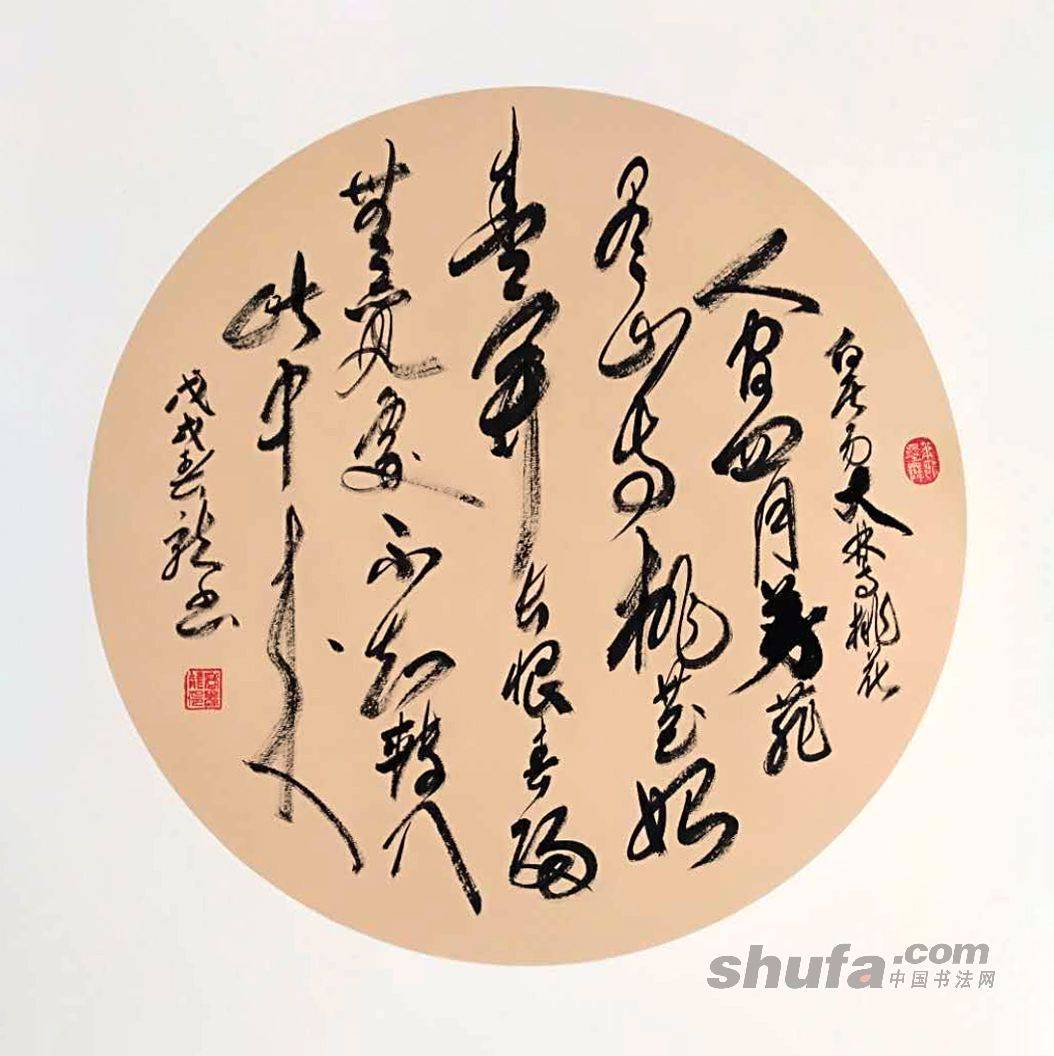 白居易大林寺桃花
人间四月芳菲
尽山寺桃花始
盛開长恨春歸
無覓處不知轉入
此中来
戊戌春龙书
shufa.com
中国书法网